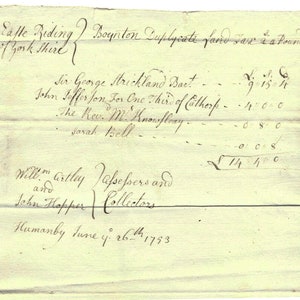 Easte Riding } Boynton Duplicate Land Tax at 2s a Pound
of York Shire
L S D
Sir George Strickland Bart. - - - 9 . 15 . 4
John Jefferson For One Third of Cathorp - 4 . 0 . 0
The Revd. Mr. Knowsley - - - 0 . 8 . 0
Sarah Bell - - - 0 . 0 . 8
£ 14 . 4 . 0
Willm Artley } Assessors and
and Collectors
John Hopper
Hunanby June ye. 26th 1753